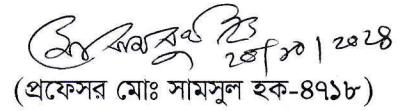 ২৪/১০/২০২৪
(প্রফেসর মোঃ সামসুল হক-৪৭১৮)